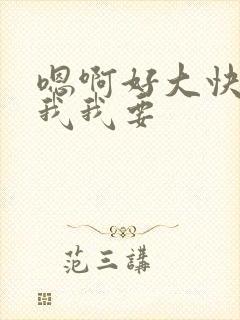 嗯啊好大快
我我要
范三講